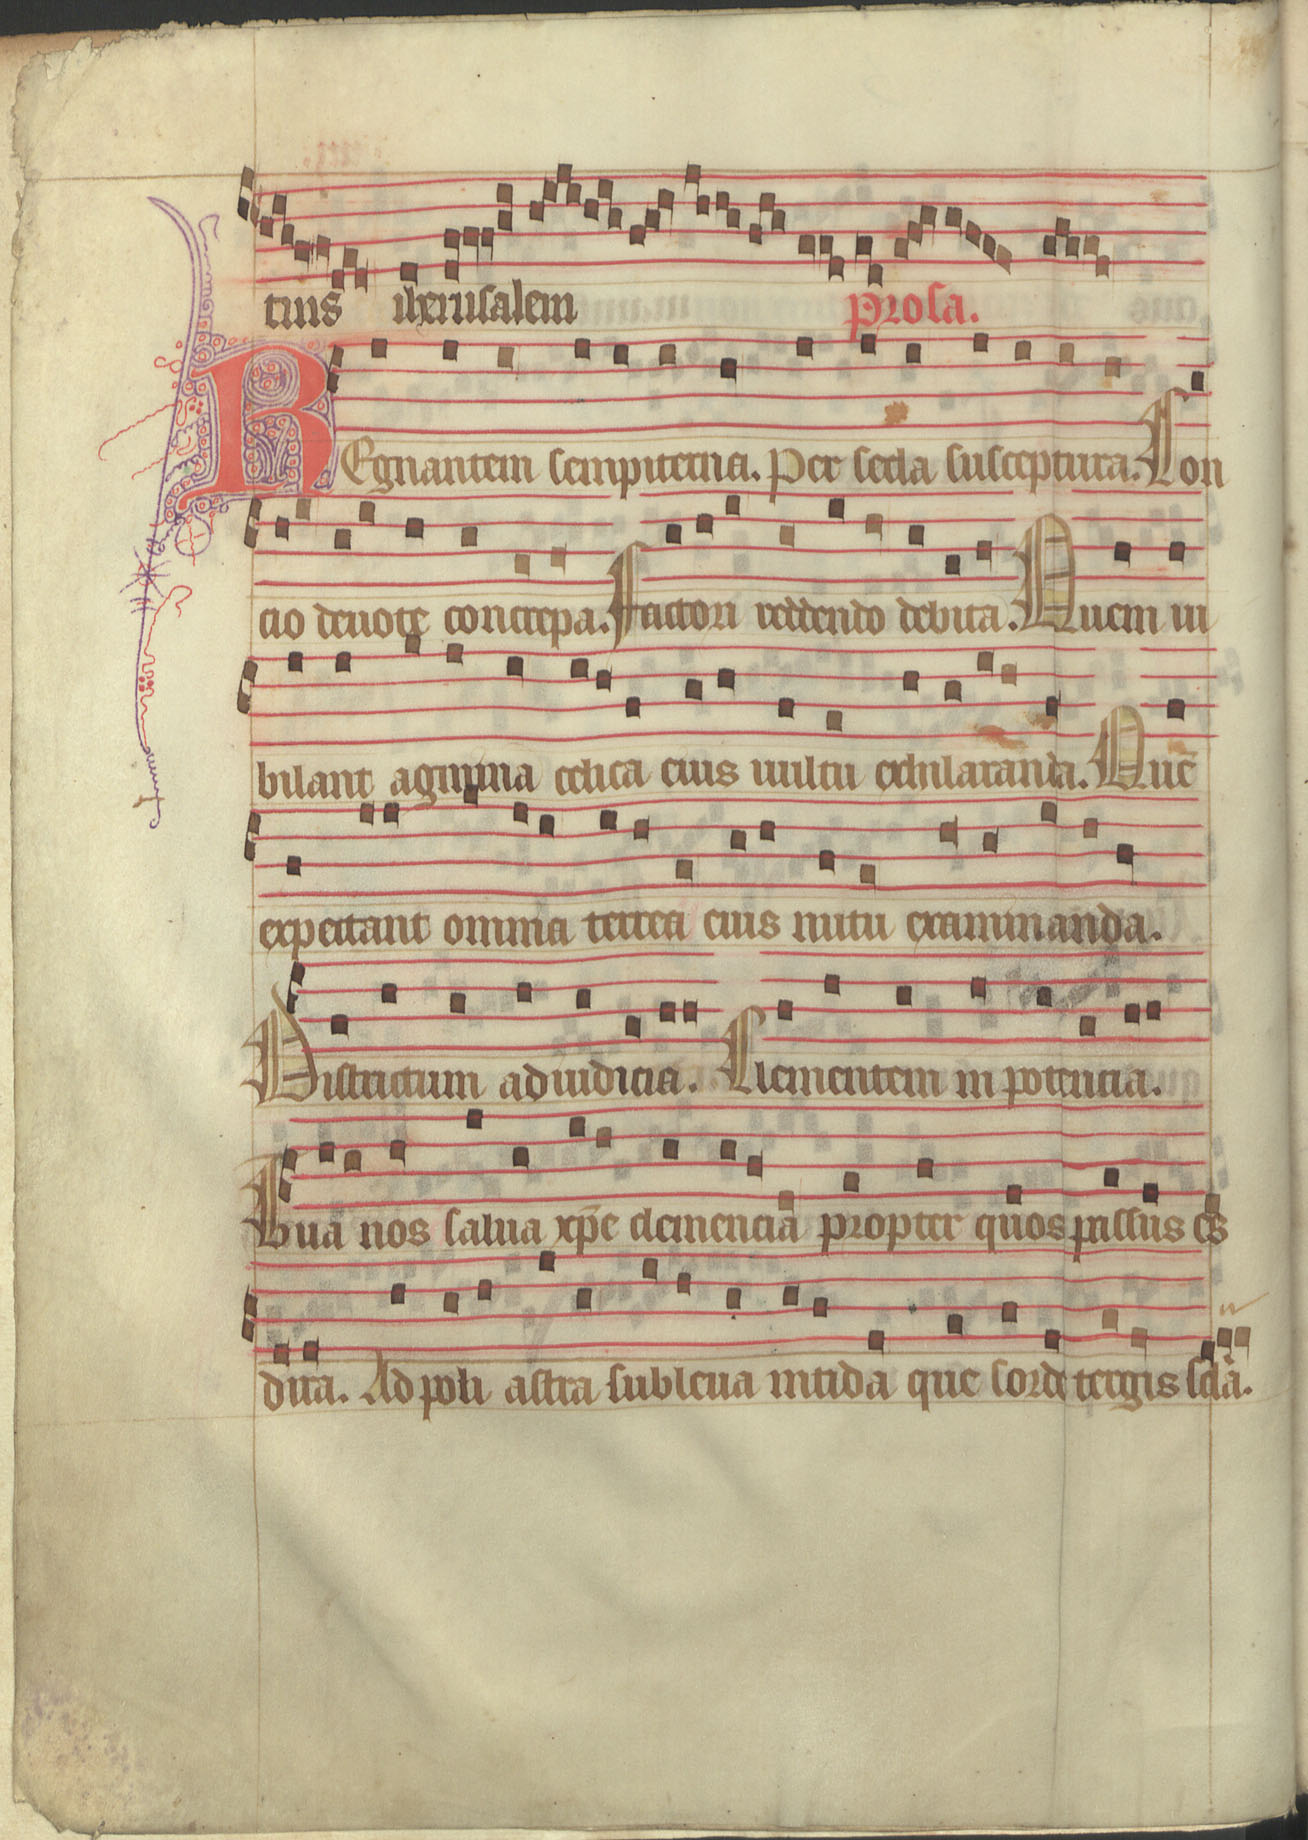 tuis iherusalem Prosa.
REgnantem sempiterna. Per secla susceptura. Con
cio deuote concrepa. Factori reddendo debita. Quem iu
bilant agmina celica eius uultu exhilaranda. Quē
expectant omnia terrea eius nutu examinanda.
Districtum ad iudicia. Clementem in potencia.
Tua nos salua xp̄e clemencia propter quos passus es
dira. Ad poli astra subleua nitida que sorde tergis scl̄a.